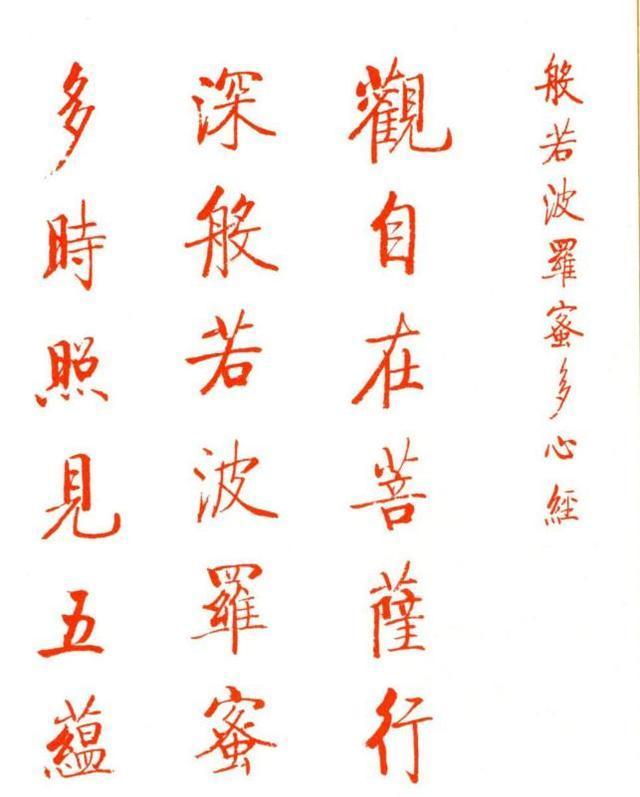 般若波羅蜜多心經
觀自在菩薩行
深般若波羅蜜
多時照見五蘊